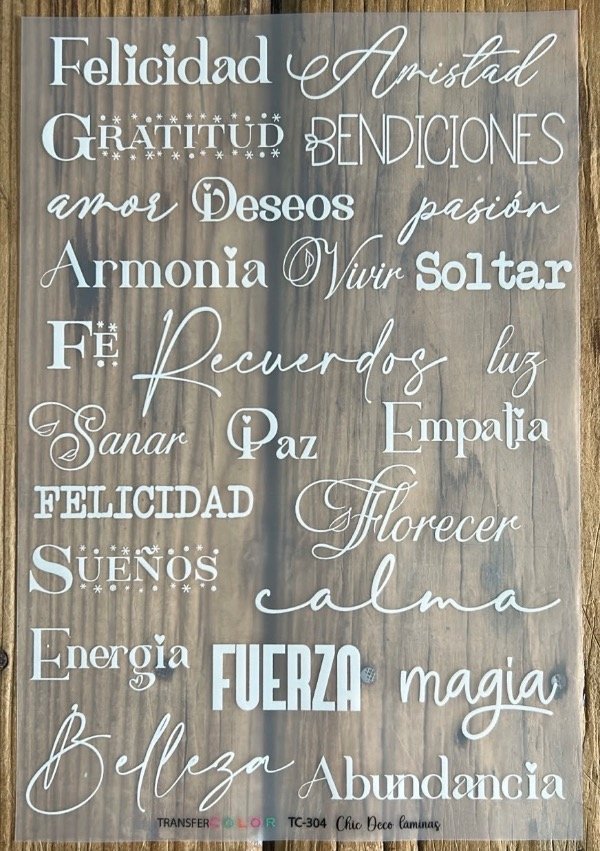 Felicidad Amistad
GRATITUD BENDICIONES
amor Deseos pasión
Armonia Vivir Soltar
FE Recuerdos luz
Sanar Paz Empatia
FELICIDAD Florecer
SUEÑOS calma
Energia FUERZA magia
Belleza Abundancia
TRANSFER COLOR TC-304 Chic Deco laminas